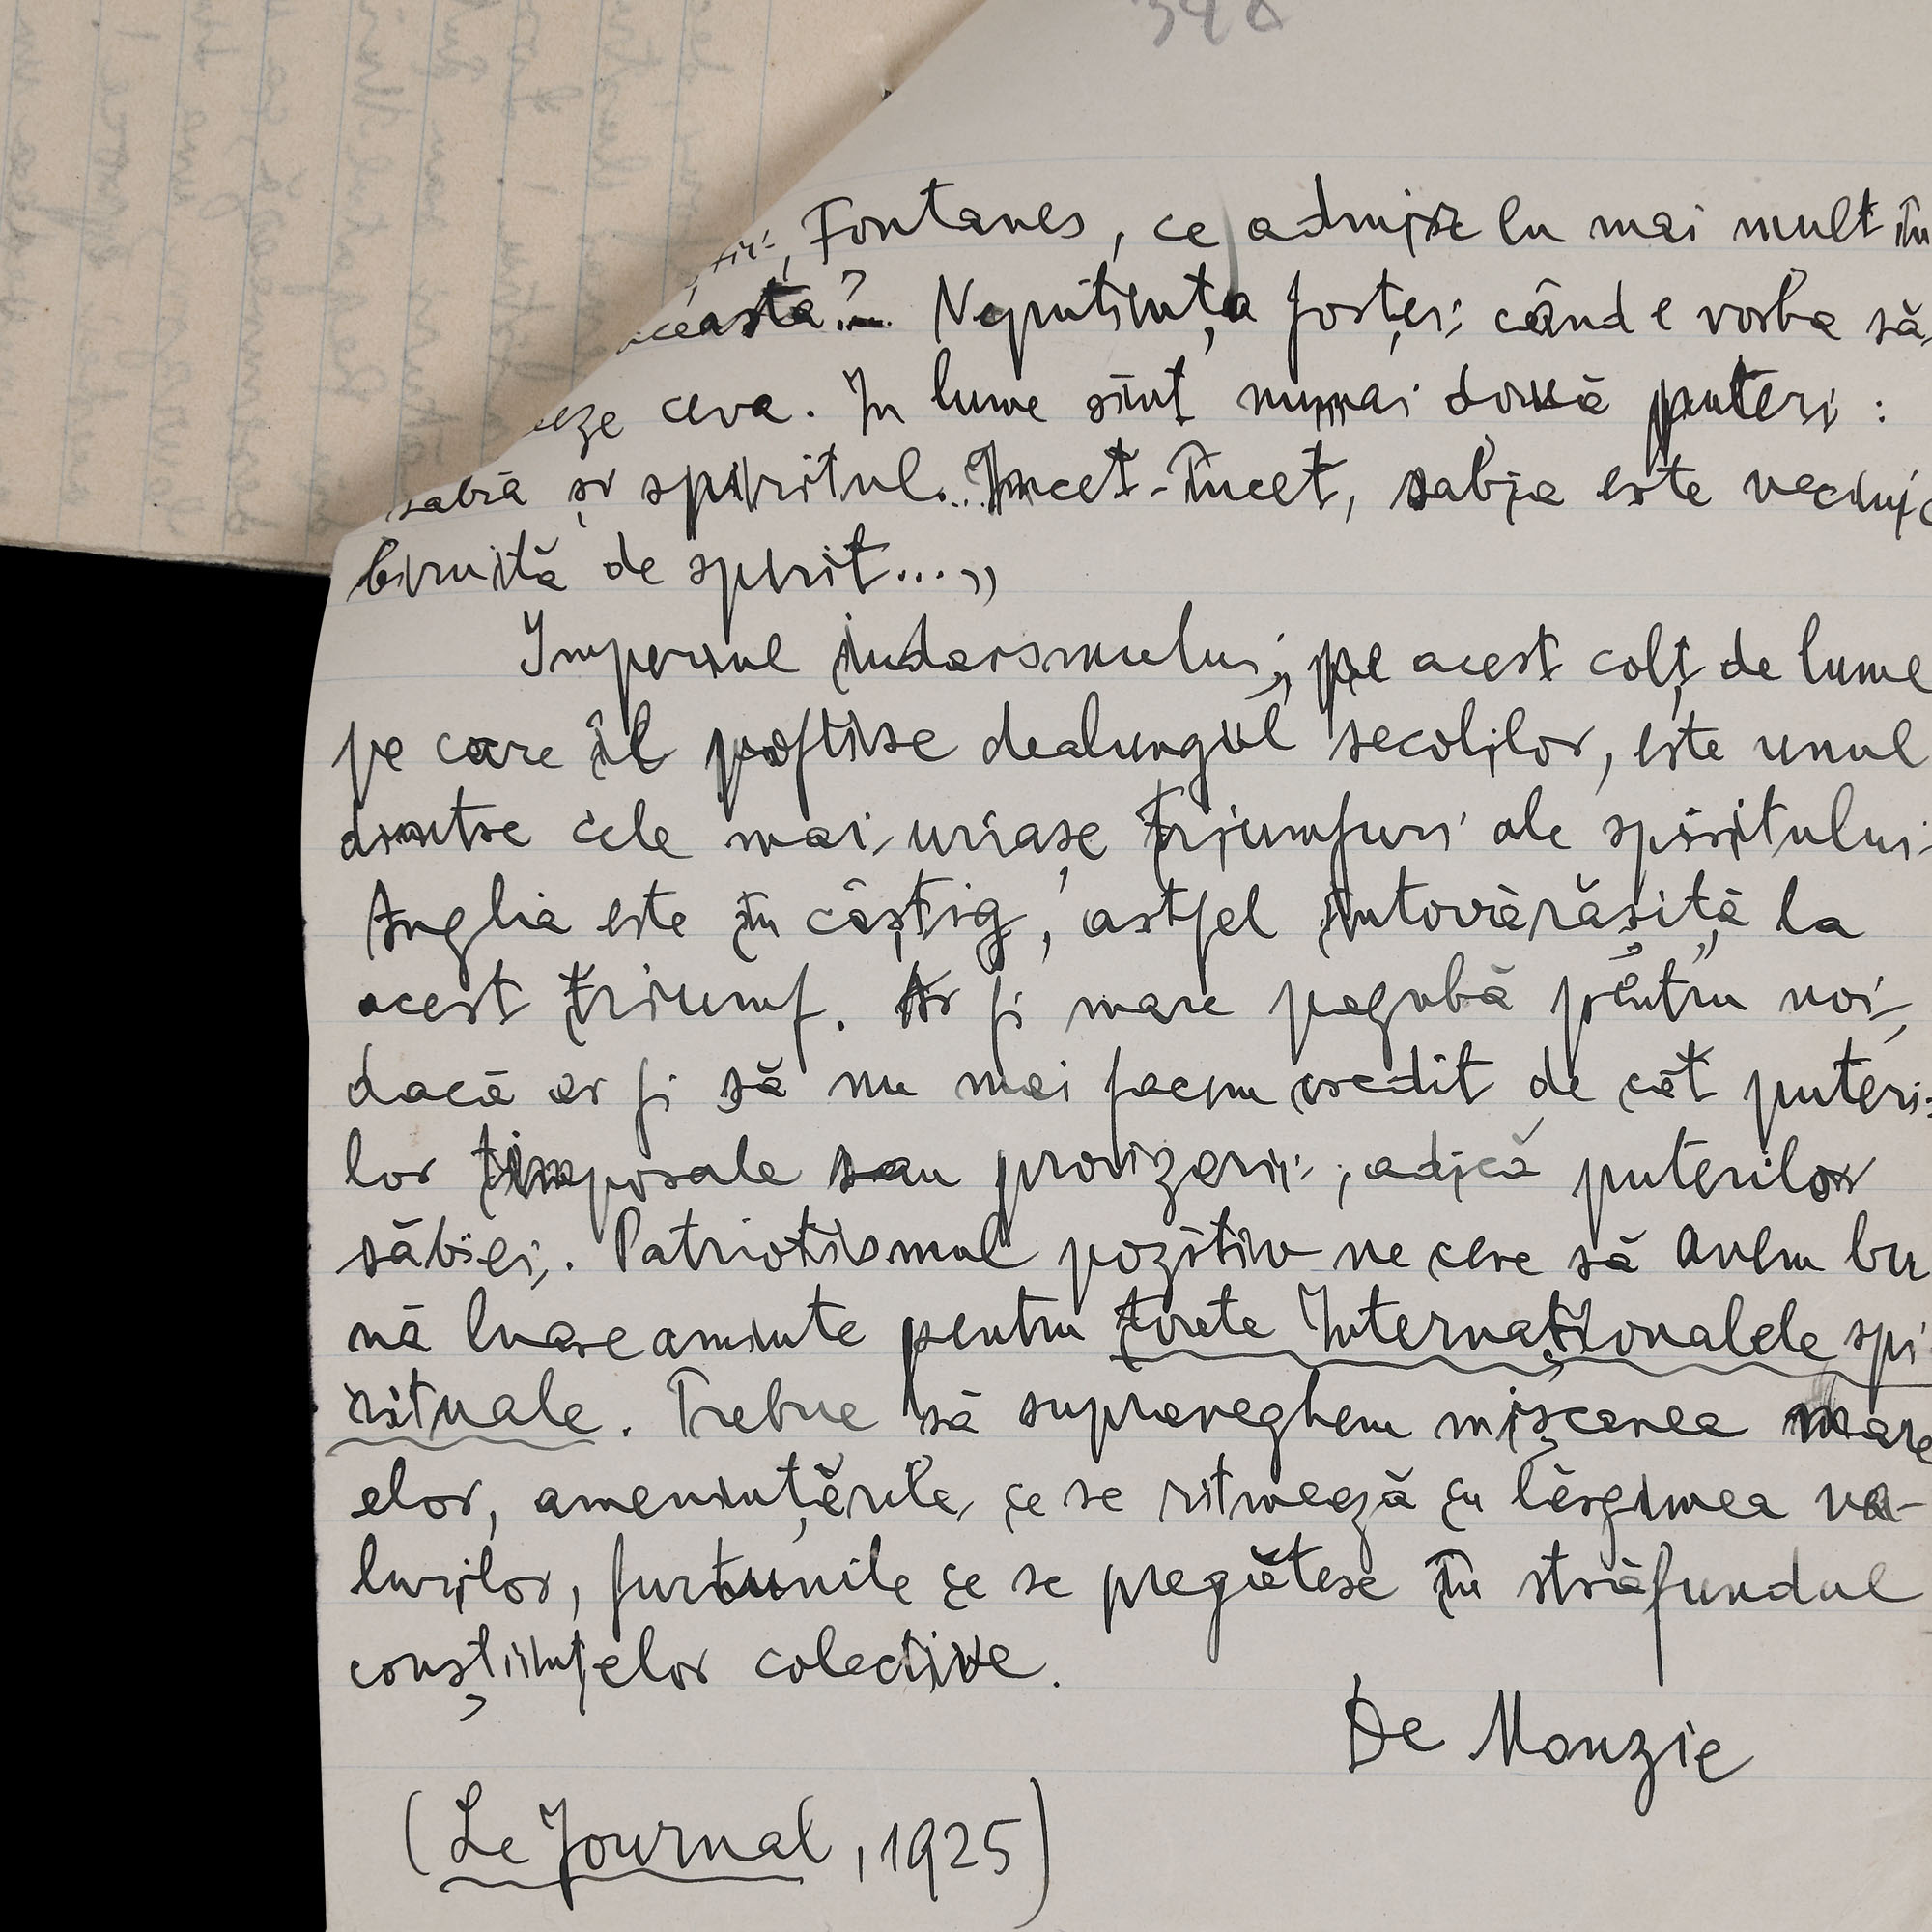 Fontanes, ce admir eu mai mult în
aceasta? Neputința forței când e vorba să
ceva. In lume sînt numai două puteri:
sabia și spiritul... Incet-încet, sabia este vecinic
biruită de spirit..."
Imperiul iudaismului, pe acest colț de lume
pe care îl poftise dealungul secolilor, este unul
dintre cele mai uriașe triumfuri ale spiritului.
Anglia este în câștig, astfel întovărășită la
acest triumf. Ar fi mare pagubă pentru noi,
dacă ar fi să nu mai facem credit de cât puteri-
lor timporale sau provizorii, adică puterilor
săbiei. Patriotismul pozitiv ne cere să avem bu
nă luareaminte pentru toate Internaționalele spi
rituale. Trebue să supraveghem mișcarea mare
elor, amenințările ce se ritmează cu lărgimea va-
lurilor, furtunile ce se pregătesc în străfundul
conștiințelor colective.
De Monzie
(Le Journal, 1925)